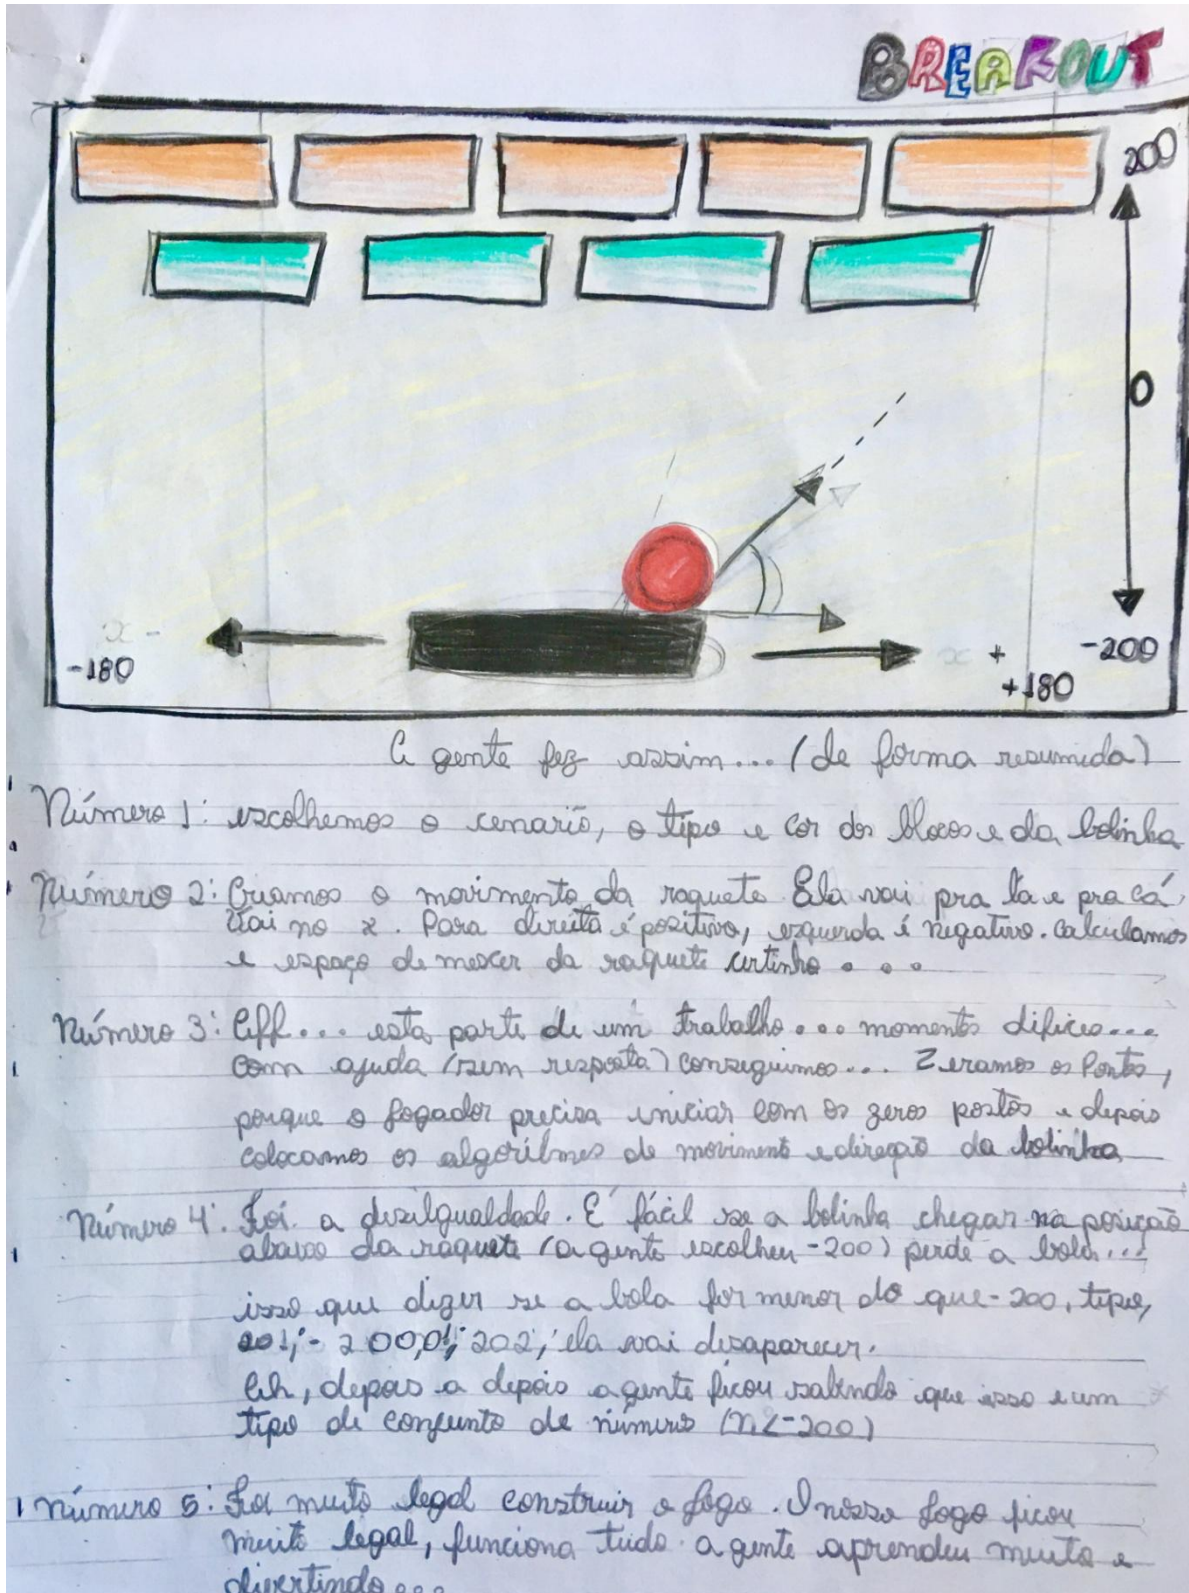 BREAKOUT
200
0
x -
-180
x +
-200
+180
A gente fez assim... (de forma resumida)
Número 1: escolhemos o cenario, o tipo e cor dos blocos e da bolinha
Número 2: Criamos o movimento da raquete Ela vai pra la e pra cá,
Vai no x. Para direita é positivo, esquerda é negativo. calculamos
e espaço de mexer da raquete certinho . . .
Número 3: Aff... esta parte de um trabalho... momentos dificeo...
com ajuda (sem resposta) conseguimos... Zeramos os Pontos,
porque o jogador precisa iniciar com os zeros postos e depois
colocamos os algorítmes de movimento e direção da bolinha
Número 4: Foi a desilgualdade. É fácil se a bolinha chegar na posição
abaixo da raquete (a gente escolheu -200) perde a bola...
isso que dizer se a bola for menor do que -200, tipo,
201, - 200,01, 202, ela vai desaparecer.
Ah, depois a depois a gente ficou sabendo que isso e um
tipo de conjunto de números (n<-200)
Número 5: Foi muito legal construir o jogo. O nosso jogo ficou
muito legal, funciona tudo. a gente aprendeu muito e
divertindo...